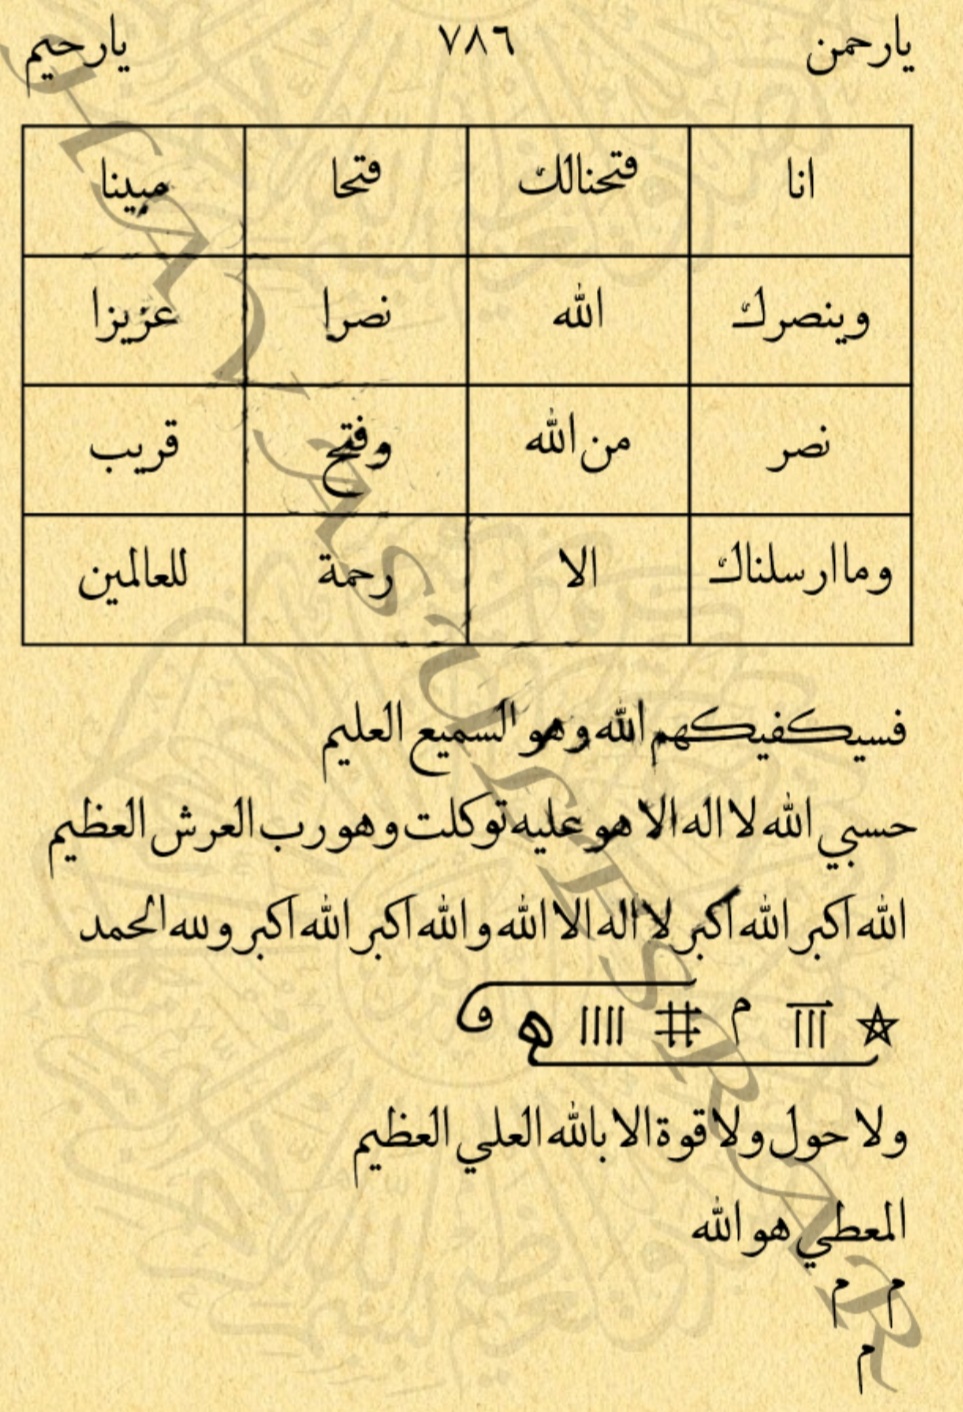 يارحمن ٧٨٦ يارحيم
انا فتحنالك فتحا مبينا
وينصرك الله نصرا عزيزا
نصر من الله وفتح قريب
وماارسلناك الا رحمة للعالمين
فسيكفيكهم الله وهو السميع العليم
حسبي الله لا اله الا هو عليه توكلت وهو رب العرش العظيم
الله اكبر الله اكبر لا اله الا الله والله اكبر الله اكبر ولله الحمد
☆ ااا م # اااا ه و
ولا حول ولا قوة الا بالله العلي العظيم
المعطي هو الله
م م
م